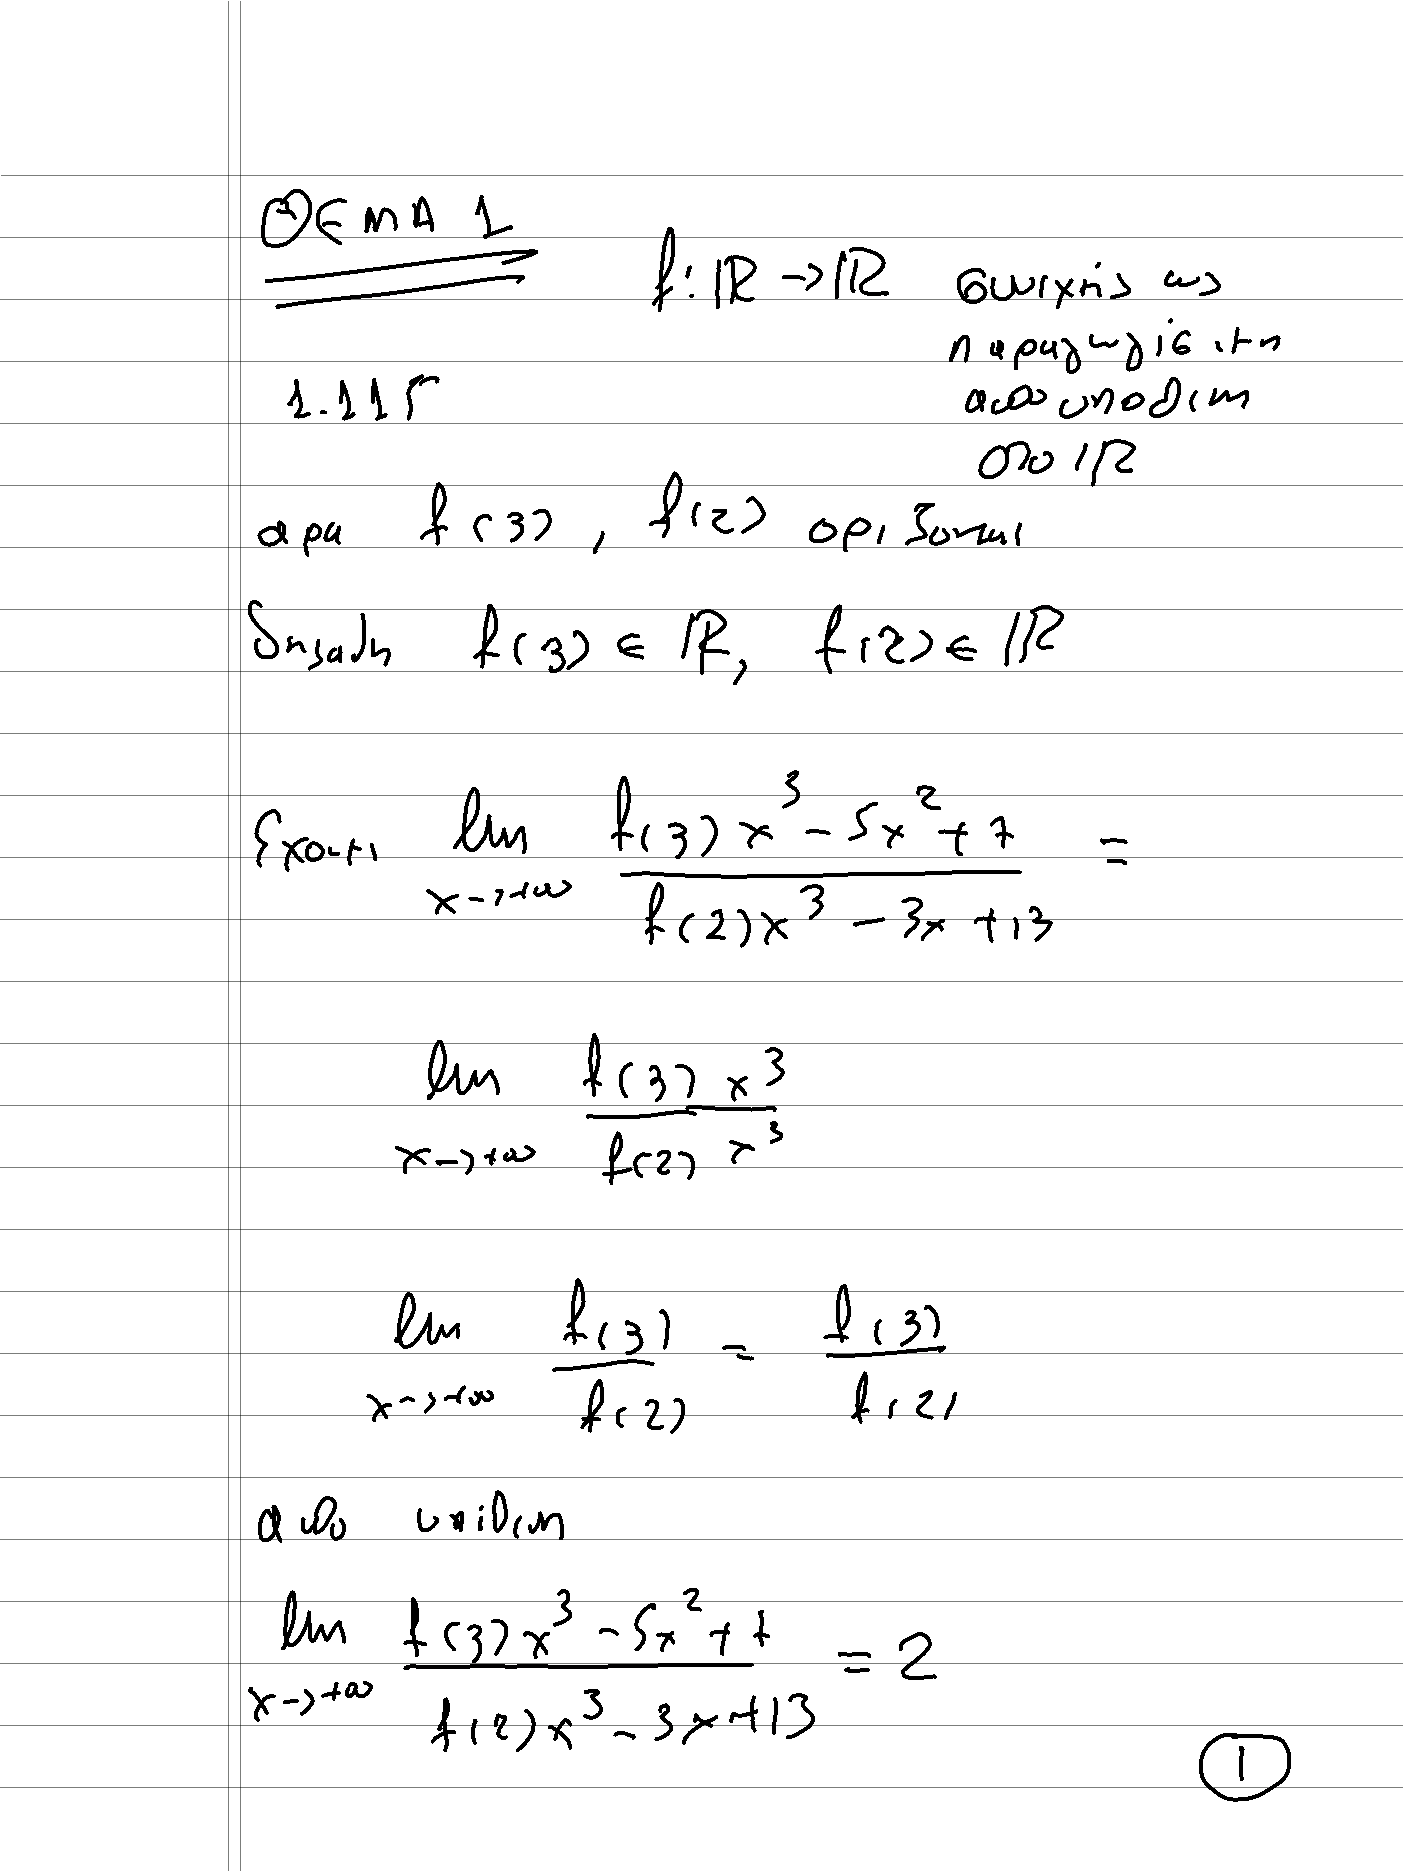 ΘΕΜΑ 1
f: ℝ → ℝ συνεχής ως
παραγωγίσιμη
από υπόθεση
στο ℝ
1.11Γ
αρα f(3), f(2) οριζονται
δηλαδη f(3) ∈ ℝ, f(2) ∈ ℝ
Εχουμε lim x→+∞ (f(3)x³ - 5x² + 7) / (f(2)x³ - 3x + 13) =
lim x→+∞ (f(3) x³) / (f(2) x³)
lim x→+∞ f(3) / f(2) = f(3) / f(2)
απο υποθεση
lim x→+∞ (f(3)x³ - 5x² + 7) / (f(2)x³ - 3x + 13) = 2
1